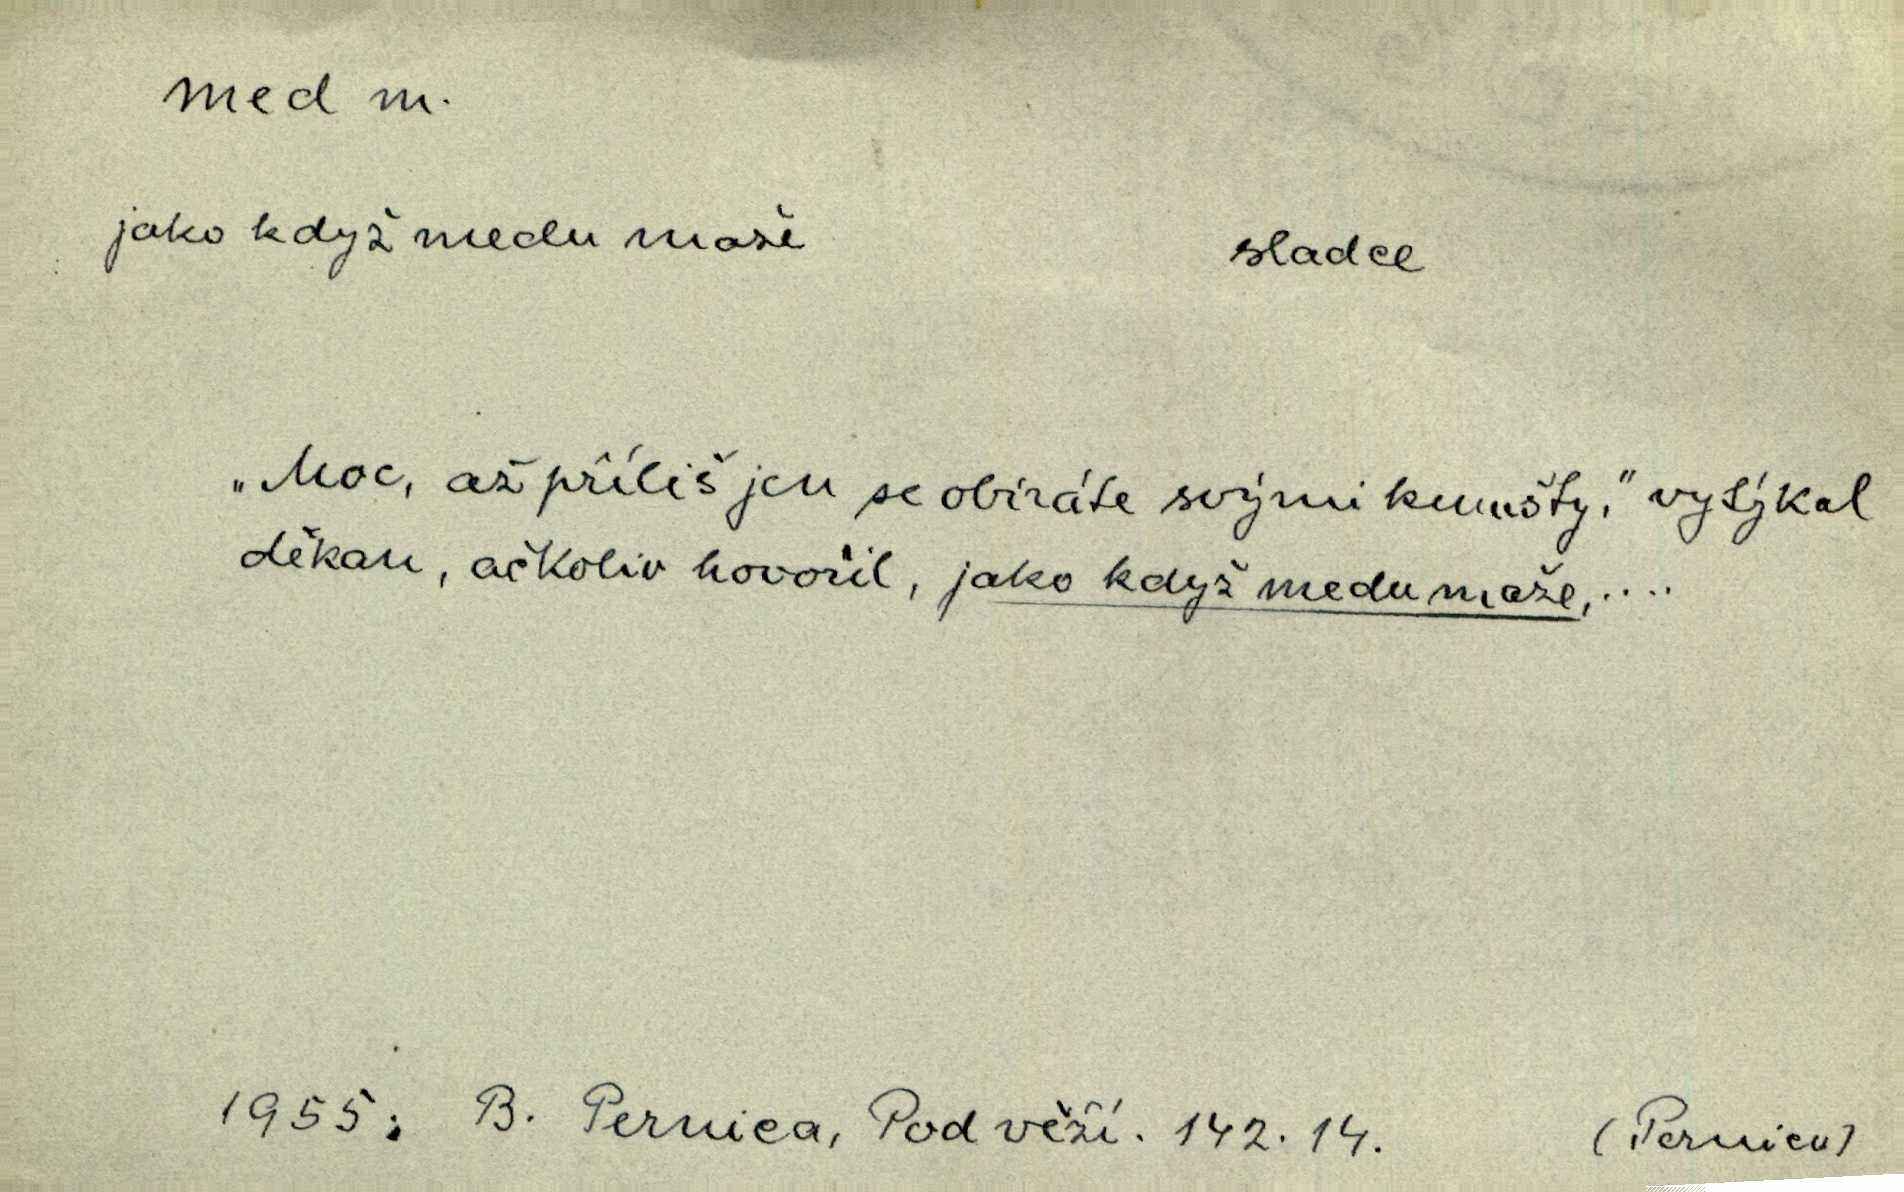 med m.
jako když medu maže
sladce
„Moc, až příliš jen se obíráte svými kumšty," vytýkal
děkan, ačkoliv hovořil, jako když medu maže, ....
1955: B. Pernica, Pod věží. 142. 14. (Pernica)